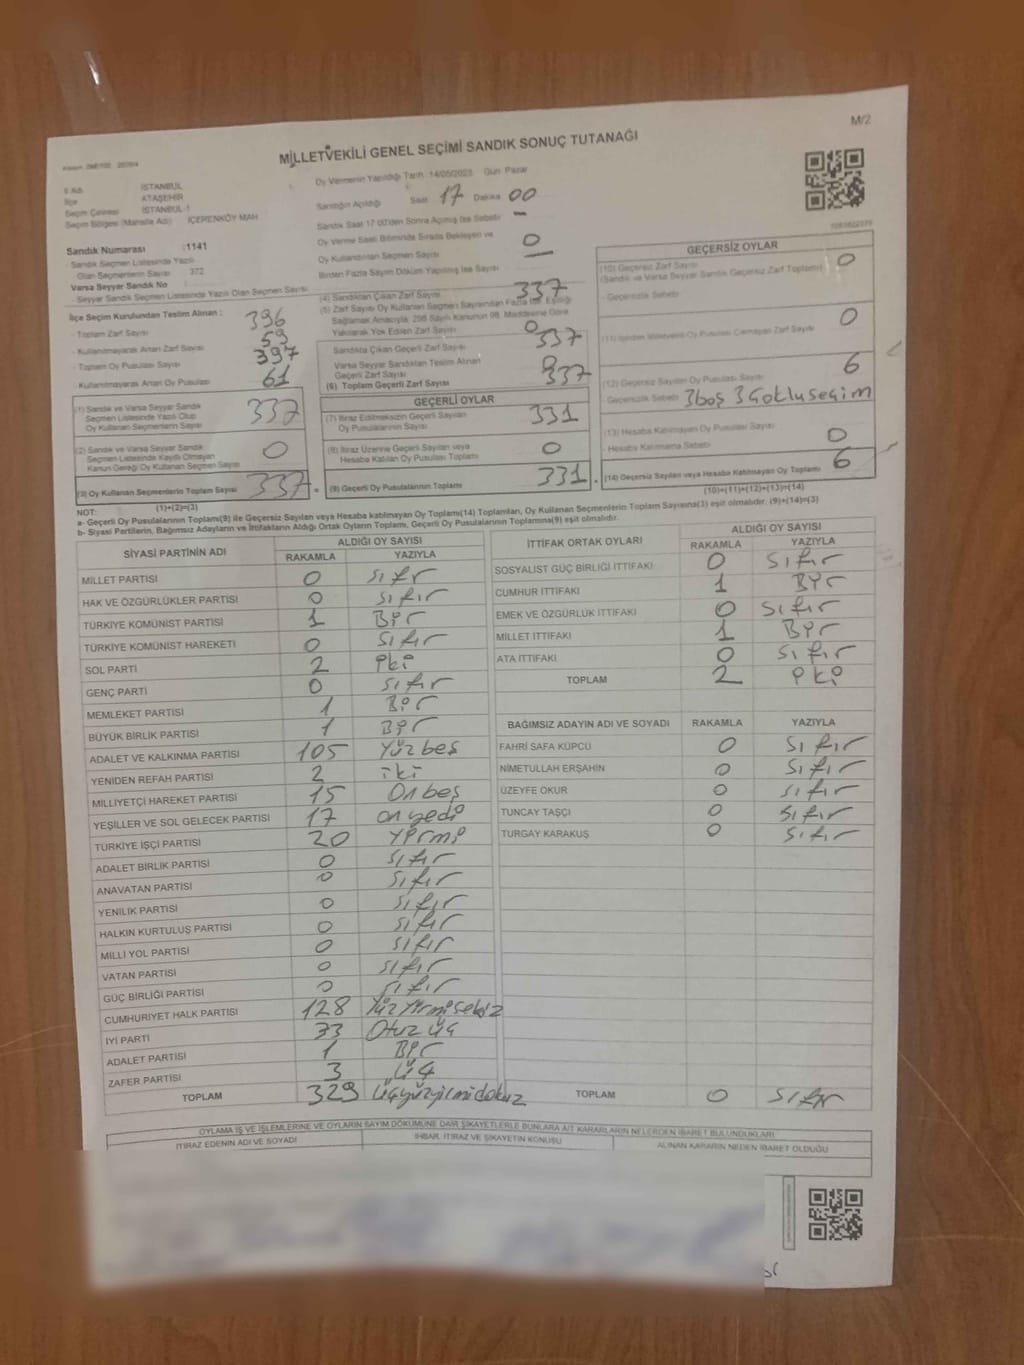 M/2
MİLLETVEKİLİ GENEL SEÇİMİ SANDIK SONUÇ TUTANAĞI
İl Adı İSTANBUL
İlçe ATAŞEHİR
Seçim Çevresi İSTANBUL-1
Seçim Bölgesi (Mahalle Adı) İÇERENKÖY MAH
Sandık Numarası :1141
- Sandık Seçmen Listesinde Yazılı
Olan Seçmenlerin Sayısı : 372
Varsa Seyyar Sandık No
- Seyyar Sandık Seçmen Listesinde Yazılı Olan Seçmen Sayısı
İlçe Seçim Kurulundan Teslim Alınan :
- Toplam Zarf Sayısı 396
- Kullanılmayarak Artan Zarf Sayısı 59
- Toplam Oy Pusulası Sayısı 397
- Kullanılmayarak Artan Oy Pusulası 61
(1) Sandık ve Varsa Seyyar Sandık
Seçmen Listesinde Yazılı Olup
Oy Kullanan Seçmenlerin Sayısı 337
(2) Sandık ve Varsa Seyyar Sandık
Seçmen Listesinde Kayıtlı Olmayan
Kanun Gereği Oy Kullanan Seçmen Sayısı 0
(3) Oy Kullanan Seçmenlerin Toplam Sayısı 337
(1)+(2)=(3)
Oy Vermenin Yapıldığı Tarih :14/05/2023 Gün: Pazar
Sandığın Açıldığı Saat 17 Dakika 00
Sandık Saat 17:00'den Sonra Açılmış İse Sebebi -
Oy Verme Saati Bitiminde Sırada Bekleyen ve
Oy Kullandırılan Seçmen Sayısı 0
Birden Fazla Sayım Döküm Yapılmış İse Sayısı -
(4) Sandıktan Çıkan Zarf Sayısı 337
(5) Zarf Sayısı Oy Kullanan Seçmen Sayısından Fazla İse, Eşitliği
Sağlamak Amacıyla, 298 Sayılı Kanunun 98. Maddesine Göre
Yakılarak Yok Edilen Zarf Sayısı 0
Sandıkta Çıkan Geçerli Zarf Sayısı 337
Varsa Seyyar Sandıktan Teslim Alınan
Geçerli Zarf Sayısı 0
(6) Toplam Geçerli Zarf Sayısı 337
GEÇERLİ OYLAR
(7) İtiraz Edilmeksizin Geçerli Sayılan
Oy Pusulasının Sayısı 331
(8) İtiraz Üzerine Geçerli Sayılan veya
Hesaba Katılan Oy Pusulası Toplamı 0
(9) Geçerli Oy Pusulalarının Toplamı 331
GEÇERSİZ OYLAR
(10) Geçersiz Zarf Sayısı 0
(Sandık ve Varsa Seyyar Sandık Geçersiz Zarf Toplamı)
- Geçersizlik Sebebi
(11) İçinden Milletvekili Oy Pusulası Çıkmayan Zarf Sayısı 0
(12) Geçersiz Sayılan Oy Pusulası Sayısı 6
Geçersizlik Sebebi 3boş 3Çoklu seçim
(13) Hesaba Katılmayan Oy Pusulası Sayısı
- Hesaba Katılmama Sebebi 0
(14) Geçersiz Sayılan veya Hesaba Katılmayan Oy Toplamı 6
(10)+(11)+(12)+(13)=(14)
NOT:
a- Geçerli Oy Pusulalarının Toplamı(9) ile Geçersiz Sayılan veya Hesaba katılmayan Oy Toplamı(14) Toplamları, Oy Kullanan Seçmenlerin Toplam Sayısına(3) eşit olmalıdır. (9)+(14)=(3)
b- Siyasi Partilerin, Bağımsız Adayların ve İttifakların Aldığı Ortak Oyların Toplamı, Geçerli Oy Pusulalarının Toplamına(9) eşit olmalıdır.
SİYASİ PARTİNİN ADI ALDIĞI OY SAYISI
RAKAMLA YAZIYLA
MİLLET PARTİSİ 0 Sıfır
HAK VE ÖZGÜRLÜKLER PARTİSİ 0 Sıfır
TÜRKİYE KOMÜNİST PARTİSİ 1 Bir
TÜRKİYE KOMÜNİST HAREKETİ 0 Sıfır
SOL PARTİ 2 iki
GENÇ PARTİ 0 Sıfır
MEMLEKET PARTİSİ 1 Bir
BÜYÜK BİRLİK PARTİSİ 1 Bir
ADALET VE KALKINMA PARTİSİ 105 Yüzbeş
YENİDEN REFAH PARTİSİ 2 iki
MİLLİYETÇİ HAREKET PARTİSİ 15 Onbeş
YEŞİLLER VE SOL GELECEK PARTİSİ 17 onyedi
TÜRKİYE İŞÇİ PARTİSİ 20 Yirmi
ADALET BİRLİK PARTİSİ 0 Sıfır
ANAVATAN PARTİSİ 0 Sıfır
YENİLİK PARTİSİ 0 Sıfır
HALKIN KURTULUŞ PARTİSİ 0 Sıfır
MİLLİ YOL PARTİSİ 0 Sıfır
VATAN PARTİSİ 0 Sıfır
GÜÇ BİRLİĞİ PARTİSİ 0 Sıfır
CUMHURİYET HALK PARTİSİ 128 Yüzyirmisekiz
İYİ PARTİ 33 Otuz üç
ADALET PARTİSİ 1 Bir
ZAFER PARTİSİ 3 Üç
TOPLAM 329 üçyüzyirmidokuz
İTTİFAK ORTAK OYLARI ALDIĞI OY SAYISI
RAKAMLA YAZIYLA
SOSYALİST GÜÇ BİRLİĞİ İTTİFAKI 0 Sıfır
CUMHUR İTTİFAKI 1 Bir
EMEK VE ÖZGÜRLÜK İTTİFAKI 0 Sıfır
MİLLET İTTİFAKI 1 Bir
ATA İTTİFAKI 0 Sıfır
TOPLAM 2 iki
BAĞIMSIZ ADAYIN ADI VE SOYADI RAKAMLA YAZIYLA
FAHRİ SAFA KÜPCÜ 0 Sıfır
NİMETULLAH ERŞAHİN 0 Sıfır
ÜZEYFE OKUR 0 Sıfır
TUNCAY TAŞÇI 0 Sıfır
TURGAY KARAKUŞ 0 Sıfır
TOPLAM 0 Sıfır
OYLAMA İŞ VE İŞLEMLERİNE VE OYLARIN SAYIM DÖKÜMÜNE DAİR ŞİKAYETLERLE BUNLARA AİT KARARLARIN NELERDEN İBARET BULUNDUKLARI
İTİRAZ EDENİN ADI VE SOYADI İHBAR, İTİRAZ VE ŞİKAYETİN KONUSU ALINAN KARARIN NEDEN İBARET OLDUĞU